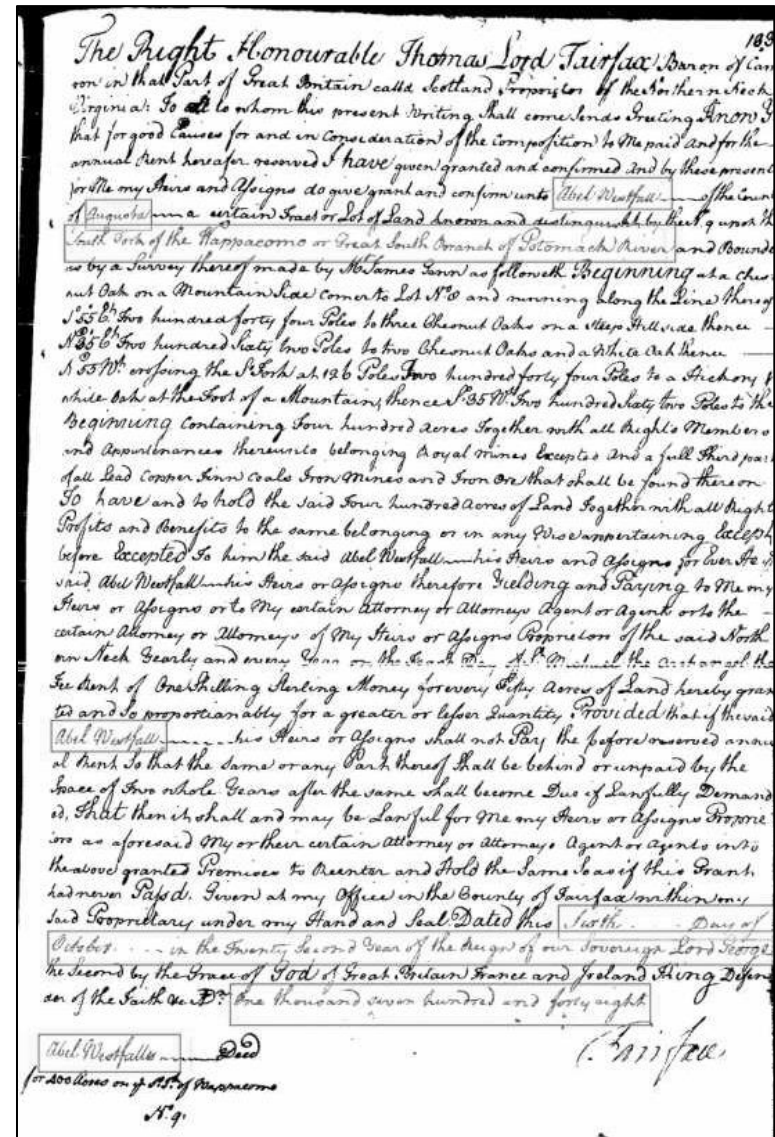 183
The Right Honourable Thomas Lord Fairfax Baron of Cam
ron in that Part of Great Britain calld Scotland Proprietor of the Northern Neck
Virginia: To all to whom this present Writing Shall come Sends Greeting Know Y
that for good Causes for and in Consideration of the Composition to Me paid and for the
annual Rent hereafer reserved I have given granted and confirmed And by these present
for Me my Heirs and Assigns do give grant and confirm unto Abel Westfall of the Coun
of Augusta a certain Tract or Lot of Land known and distinguisht by the No. 9 upon th
South Fork of the Wappacomo or Great South Branch of Potomack River and Bounde
as by a Survey thereof made by Mr. James Genn as followeth Beginning at a Ches
nut Oak on a Mountain Side corner to Lot No. 8 and running along the Line thereof
So. 55 Et. Two hundred forty four Poles to three Chesnut Oaks on a steep Hill side thence
No. 35 Et. Two hundred Sixty two Poles to two Chesnut Oaks and a White Oak thence
N 55 Wt. crossing the So. Fork at 126 Poles Two hundred forty four Poles to a Hickory &
white Oak at the Foot of a Mountain, thence So. 35 Wt. Two hundred Sixty two Poles to the
Beginning Containing Four hundred Acres Together with all Rights Members
and Appurtinances thereunto belonging Royal mines Excepted And a full Third part
of all Lead Copper Tinn Coals Iron Mines and Iron Ore that shall be found thereon
To have and to hold the said Four hundred Acres of Land Together with all Right
Profits and Benefits to the same belonging or in any Wise appertaining Except
before Excepted To him the said Abel Westfall his Heirs and Assigns for Ever He
said Abel Westfall his Heirs or Assigns therefore Yielding and Paying to Me my
Heirs or Assigns or to My certain Attorney or Attorneys Agent or Agents or to the
certain Attorney or Attorneys of My Heirs or Assigns Proprietors of the said North
ern Neck Yearly and every Year on the Feast Day of St. Michael the Archangel the
Fee Rent of One Shilling Sterling Money for every Fifty Acres of Land hereby gran
ted and So proportionably for a greater or lesser Quantity Provided that if the said
Abel Westfall his Heirs or Assigns shall not Pay the before reserved annu
al Rent So that the same or any Part thereof Shall be behind or unpaid by the
Space of Two whole Years after the same shall become Due if Lawfully Demand
ed, That then it shall and may be Lawful for Me my Heirs or Assigns Proprie
tors as aforesaid My or their certain Attorney or Attorneys Agent or Agents into
the above granted Premises to Reenter and Hold the Same So as if this Grant
had never Passd. Given at my Office in the County of Fairfax within my
said Proprietary under my Hand and Seal. Dated this Sixth Day of
October in the Twenty Second Year of the Reign of our Sovereign Lord George
the Second by the Grace of God of Great Britain France and Ireland King Defen
der of the Faith &c. ADo. One thousand seven hundred and forty eight
Fairfax
Abel Westfalls Deed
for 400 Acres on ye So. Fk. of Wappacomo
No. 9.